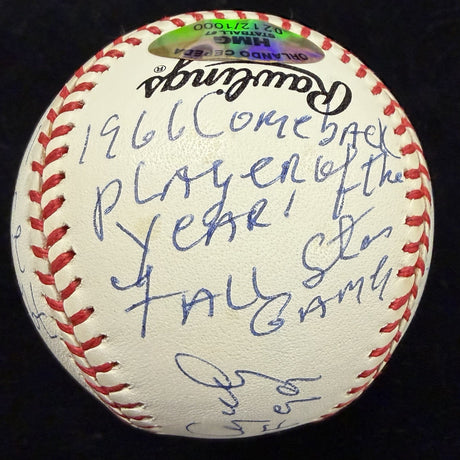 ORLANDO CEPEDA
HMG
0212/1000
Rawlings®
1966 Comeback
PLAYER of the
YEAR!
7 ALL Star
GAMES